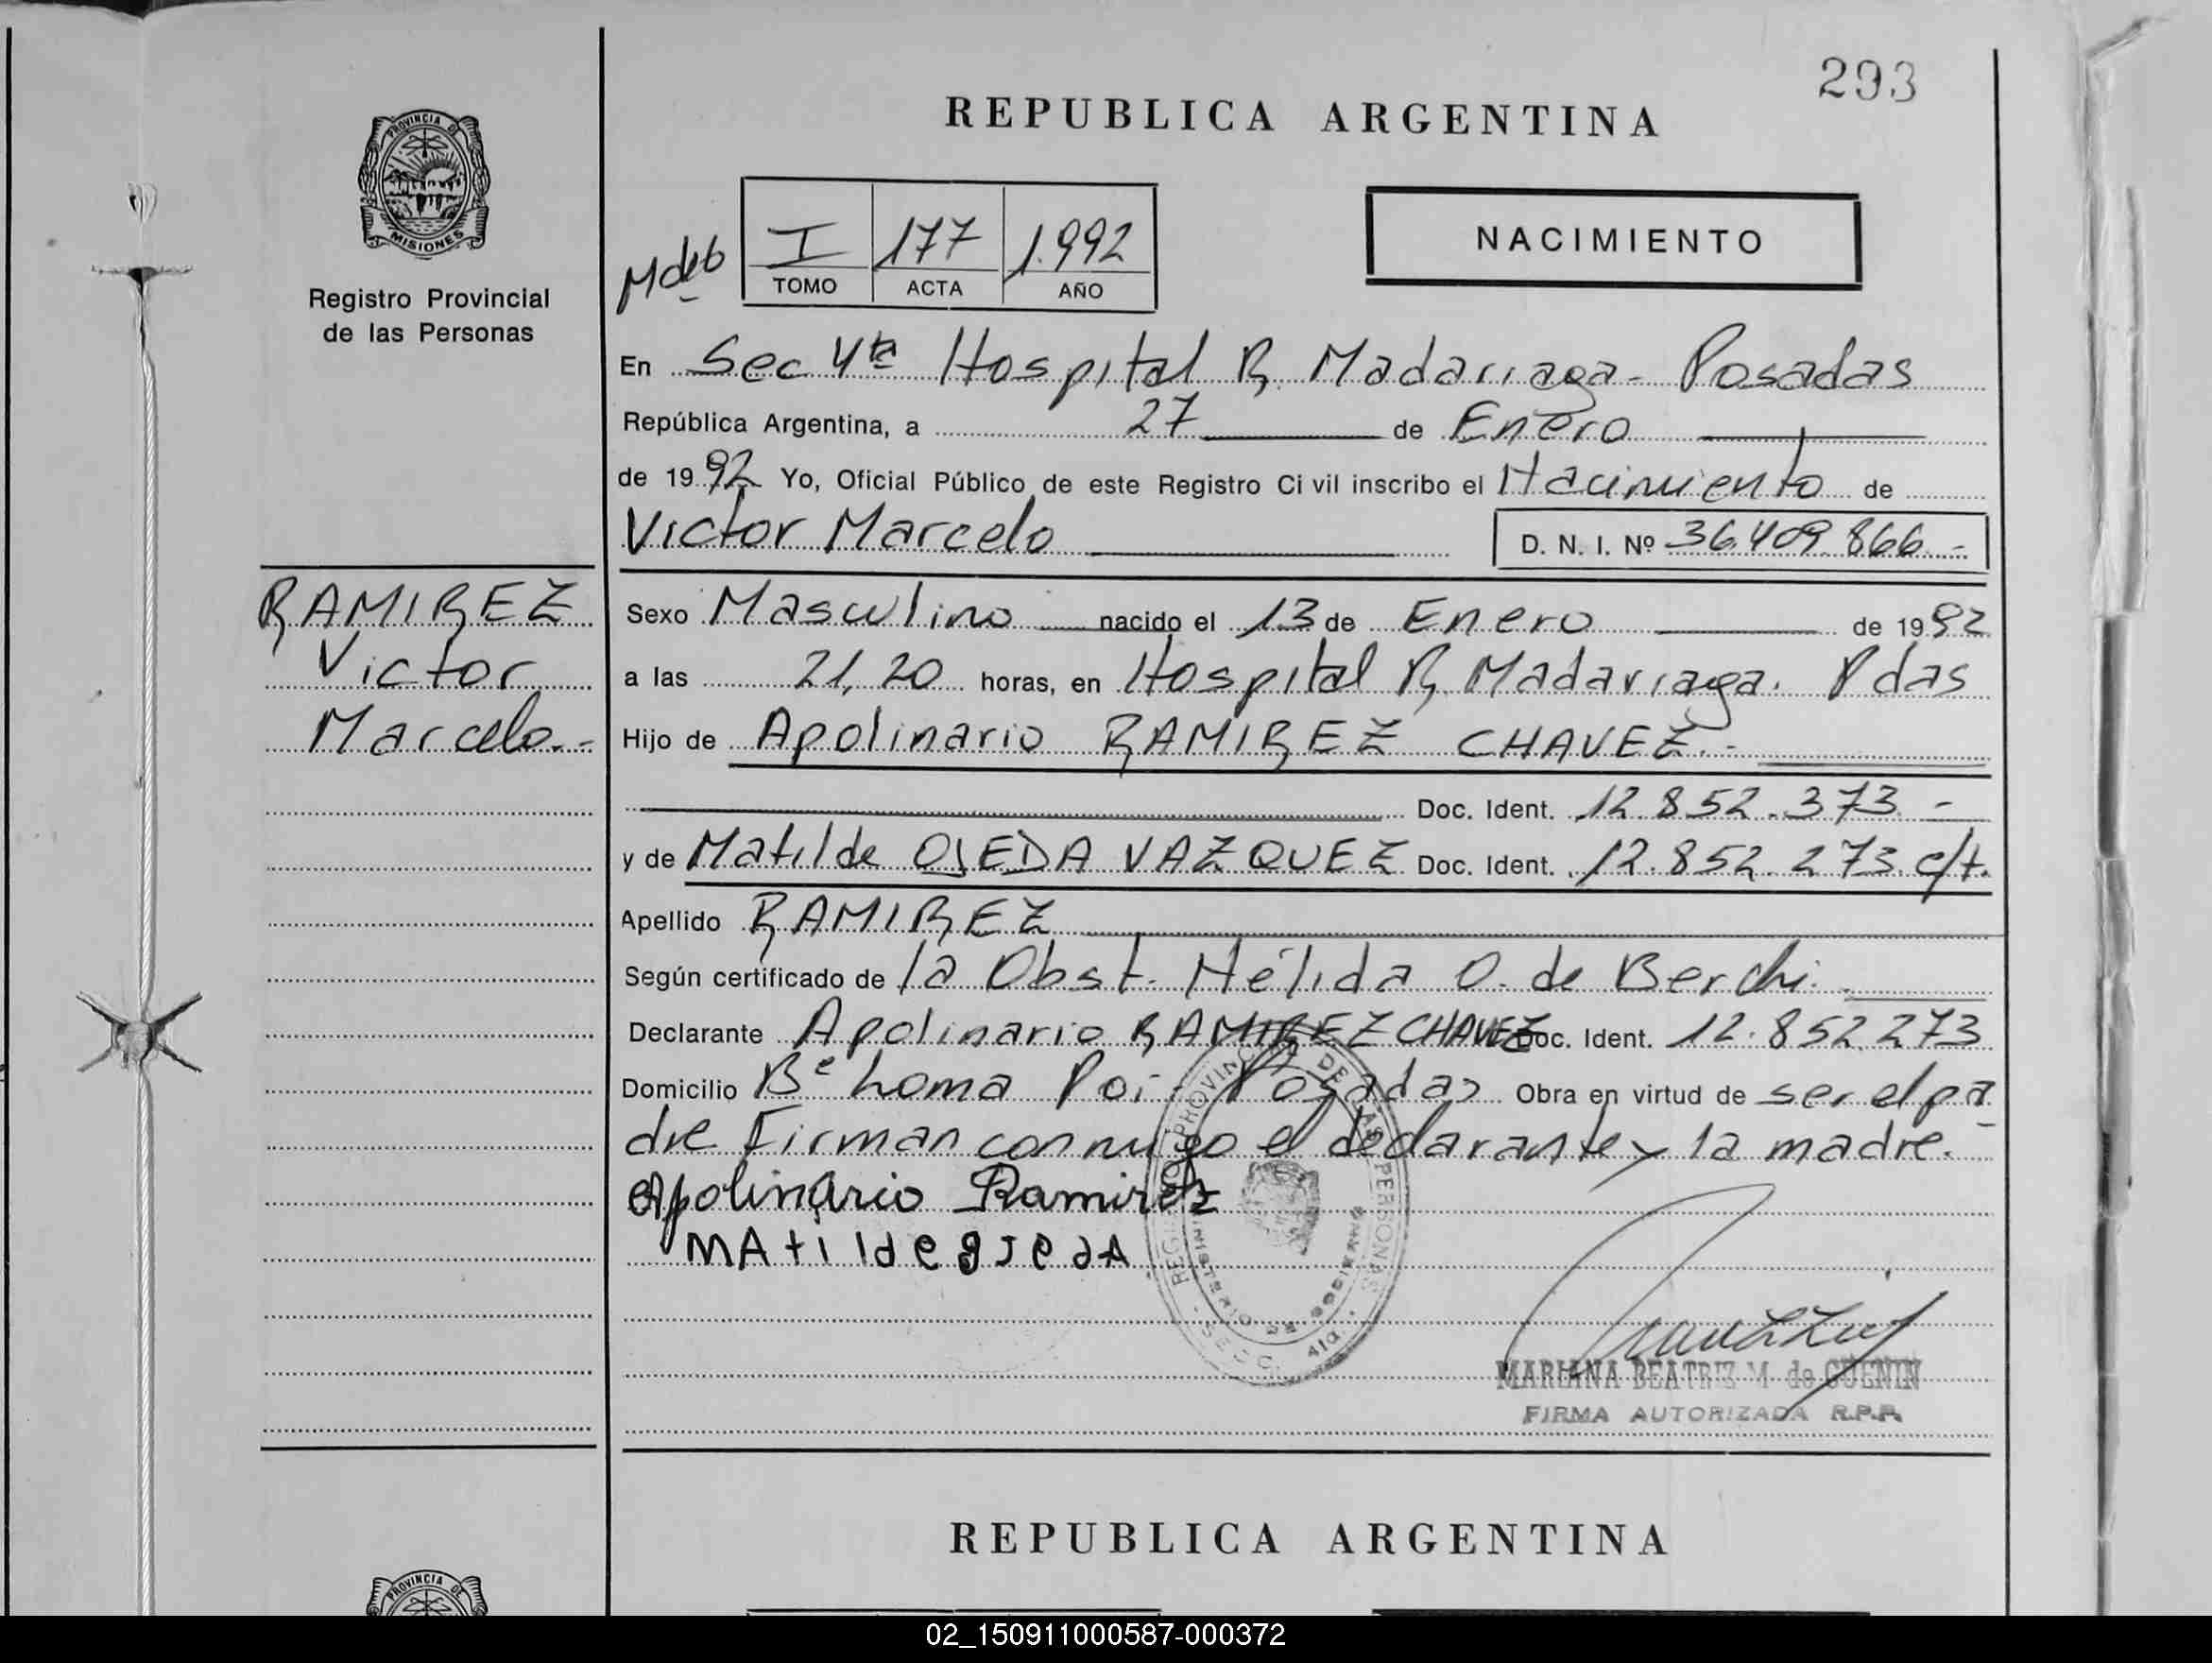 293
REPUBLICA ARGENTINA
PROVINCIA DE
MISIONES
Registro Provincial
de las Personas
Mdeb
I 177 1.992
TOMO ACTA AÑO
NACIMIENTO
En Sec 4ta Hospital R. Madariaga - Posadas
República Argentina, a 27 de Enero
de 1992 Yo, Oficial Público de este Registro Civil inscribo el Nacimiento de
Victor Marcelo D. N. I. Nº 36.409.866.-
RAMIREZ
Victor
Marcelo.-
Sexo Masculino nacido el 13 de Enero de 1992
a las 21,20 horas, en Hospital R. Madariaga. Pdas
Hijo de Apolinario RAMIREZ CHAVEZ.-
Doc. Ident. 12.852.373.-
y de Matilde OJEDA VAZQUEZ Doc. Ident. 12.852.273. c/t.
Apellido RAMIREZ
Según certificado de la Obst. Nélida O. de Berchi.
Declarante Apolinario RAMIREZ CHAVEZ Doc. Ident. 12.852.273
Domicilio Bº Loma Poi - Posadas Obra en virtud de ser el pa
dre Firman conmigo el declarante y la madre.
Apolinario Ramirez
MAtilde OJedA
REGISTRO PROVINCIAL DE LAS PERSONAS
MINISTERIO DE GOBIERNO
MARIANA BEATRIZ M. de GUENIN
FIRMA AUTORIZADA R.P.P.
REPUBLICA ARGENTINA
PROVINCIA DE
02_150911000587-000372